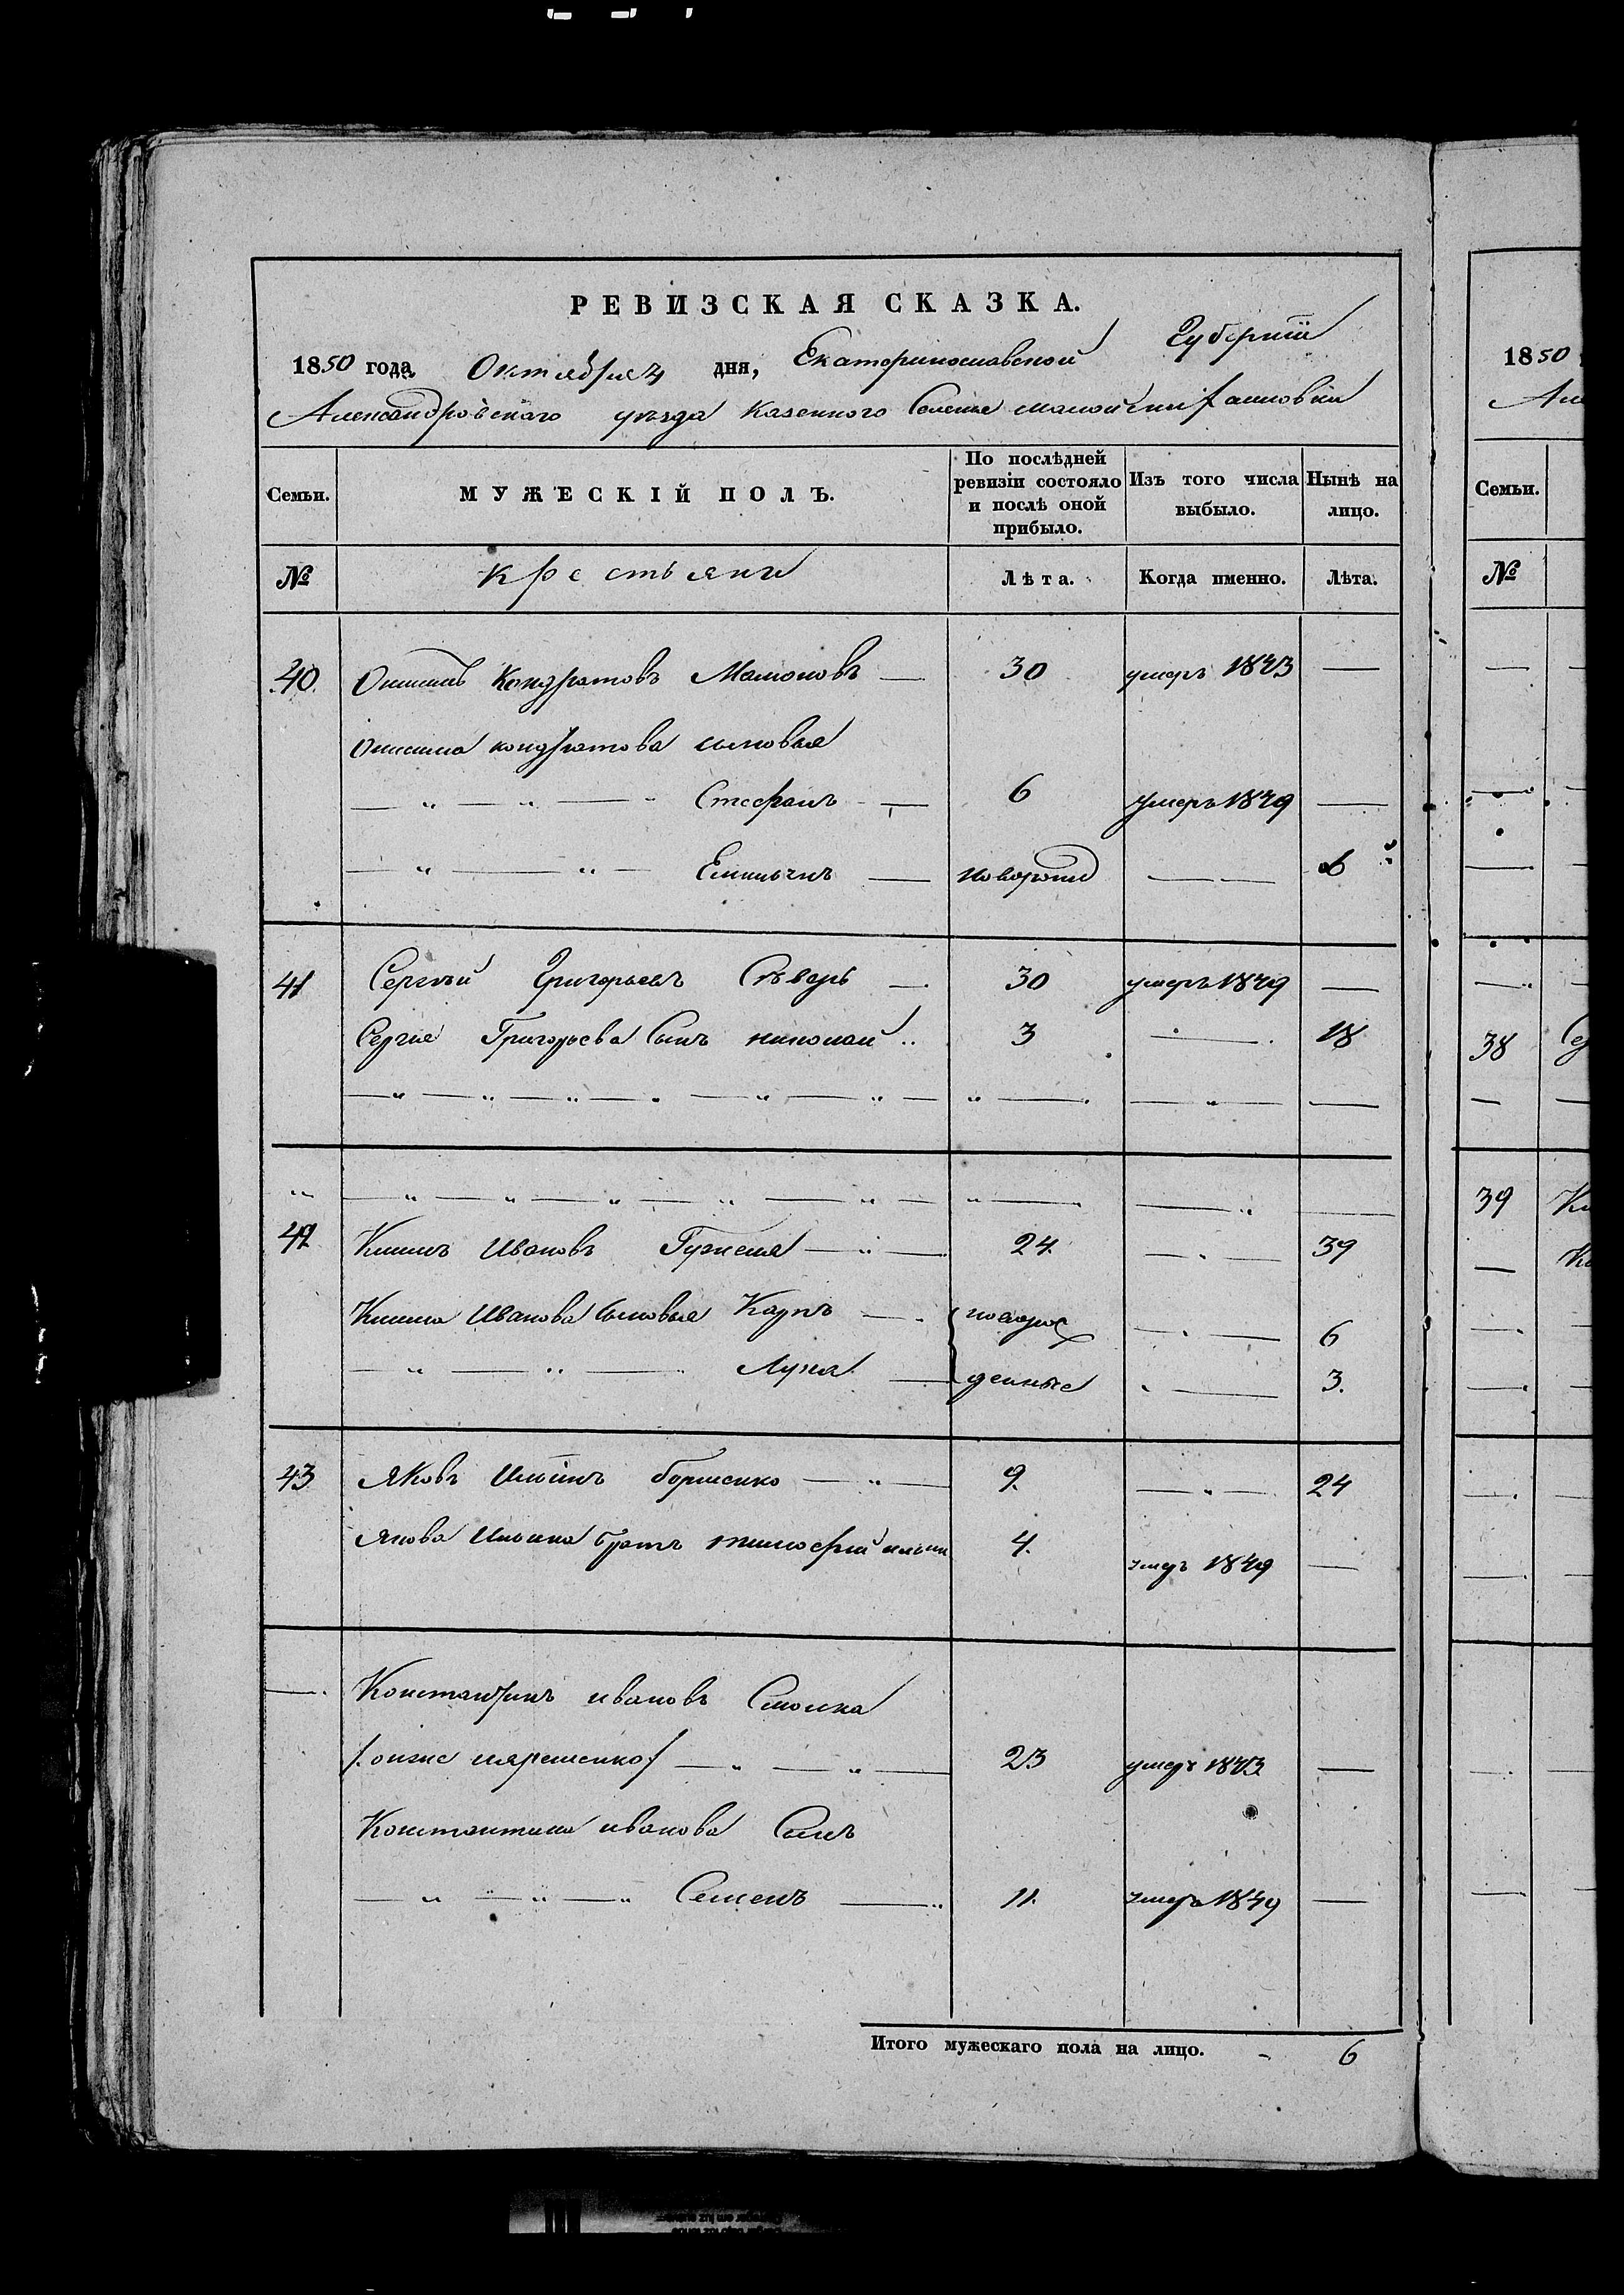 РЕВИЗСКАЯ СКАЗКА.
1850 года Октября 4 дня, Екатеринославской Губерніи
Александровскаго уѣзда Казенного Селенія малой
Семьи. МУЖЕСКІЙ ПОЛЪ. По послѣдней ревизіи состояло и послѣ оной прибыло. Изъ того числа выбыло. Нынѣ на лицо.
№ Крестьяне Лѣта. Когда именно. Лѣта.
40. Онисимъ Кондратовъ Мамоновъ — 30 умеръ 1843 —
Онисима кондратова сыновья
— " — " — " Стефанъ — 6 умеръ 1849 —
— " — " — Емельянъ — новорожд — — 6
41 Сергѣй Григорьевъ Сѣверъ — 30 умеръ 1849 —
Сергѣя Григорьева Сынъ николай .. 3 — 18
— " — " — " — " — " — " — " — — " — —
" — " — " — " — " — " — " — — " —
42 Климъ Ивановъ Гужеля — " — 24. — " — 39
Клима Иванова Сыновья Карпъ — новорож — " — 6
— " — " — Лука — денные " — 3.
43 Яковъ Ильинъ борисенко — " — 9. — " — 24
Якова Ильина братъ тимофей ильин 4. умеръ 1849 —
— Константинъ ивановъ Смолка
/онже / — " — " — 23 умеръ 1843 —
Константина иванова Сынъ
— " — " — " Семенъ — 11. умеръ 1849 —
Итого мужескаго пола на лицо. - 6
1850
Але
Семьи.
№
38 Се
39 Ки